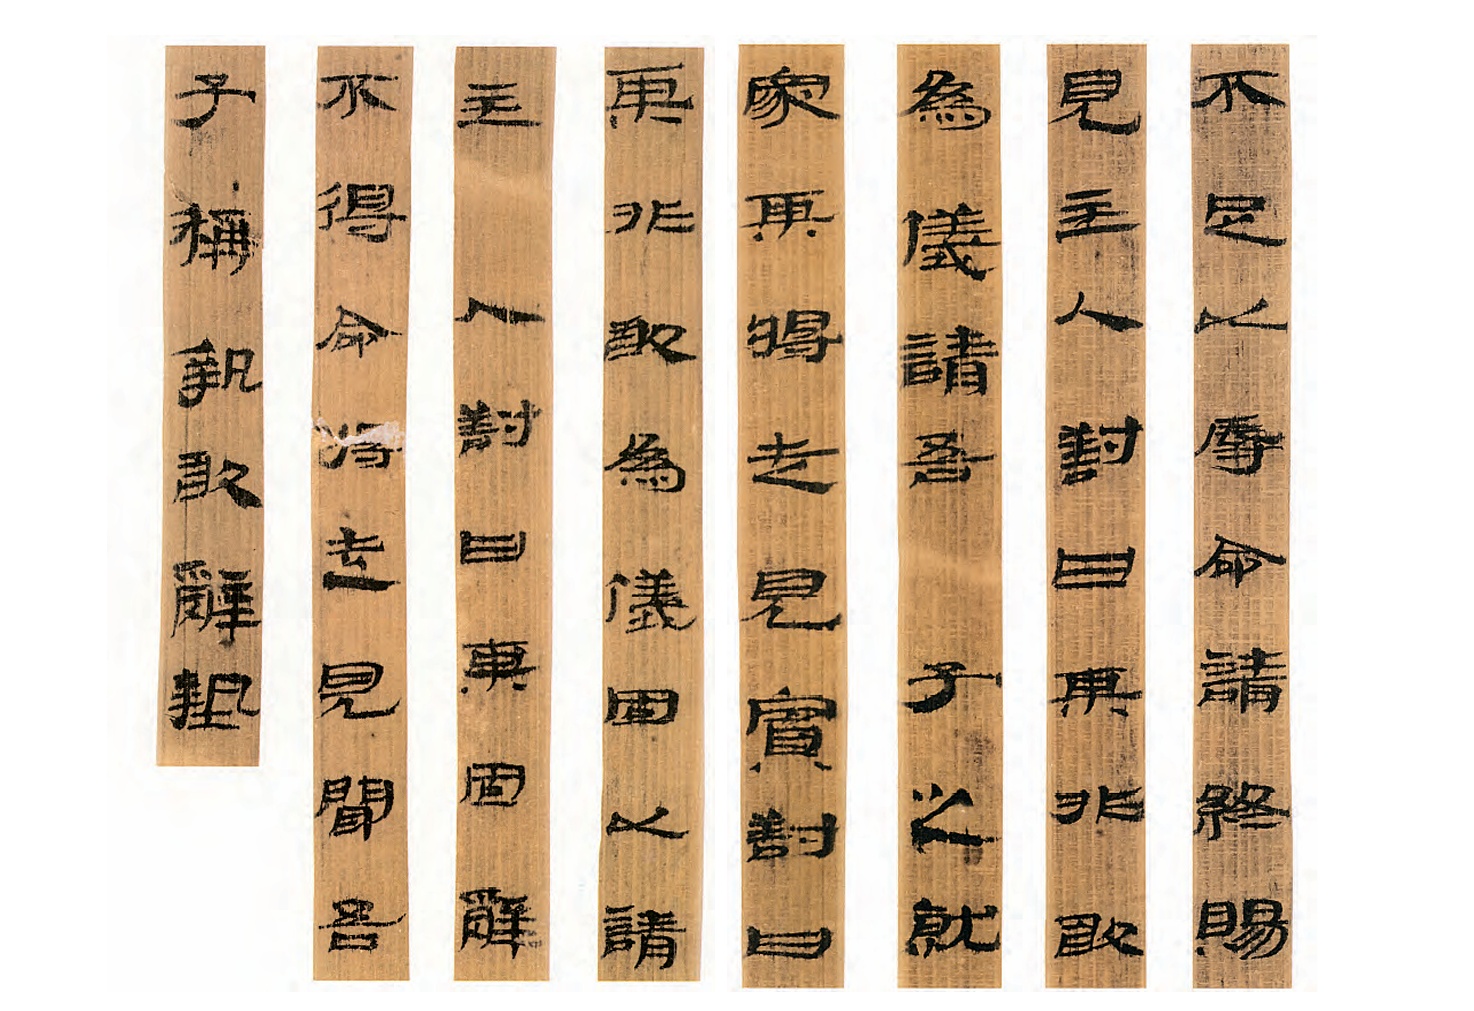 不足以辱命請終賜
見主人對曰某非敢
為儀請吾子之就
家某將走見賓對曰
某非敢為儀固以請
主人對曰某固辭
不得命將走見聞吾
子稱執敢辭執